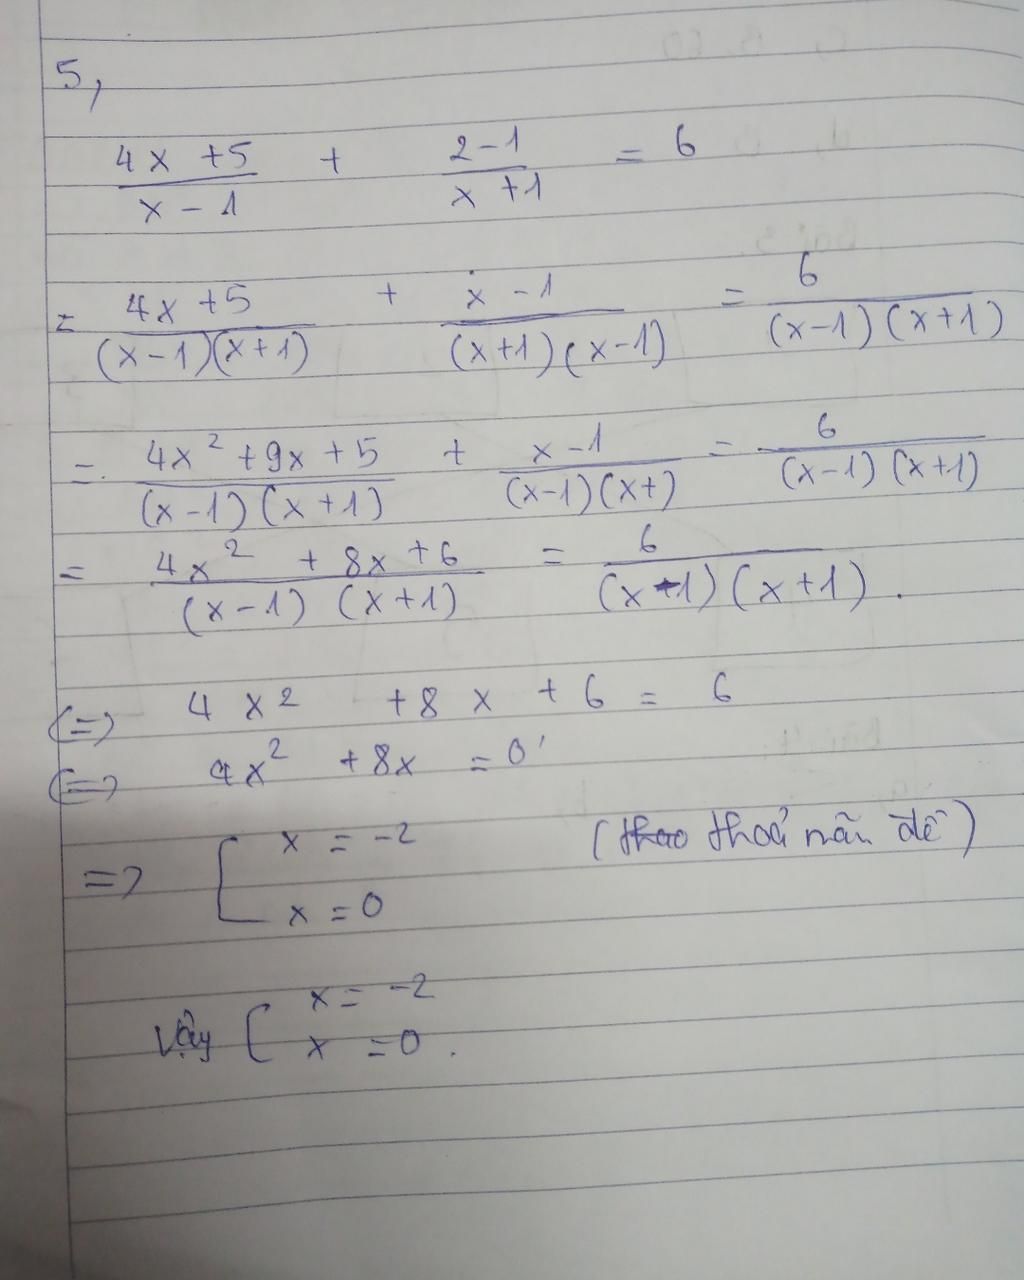 5,
\frac{4x+5}{x-1} + \frac{2-1}{x+1} = 6
= \frac{4x+5}{(x-1)(x+1)} + \frac{x-1}{(x+1)(x-1)} = \frac{6}{(x-1)(x+1)}
= \frac{4x^2+9x+5}{(x-1)(x+1)} + \frac{x-1}{(x-1)(x+)} = \frac{6}{(x-1)(x+1)}
= \frac{4x^2+8x+6}{(x-1)(x+1)} = \frac{6}{(x-1)(x+1)}.
(=) 4x^2 + 8x + 6 = 6
(=) 4x^2 + 8x = 0
=> [ x = -2 (thoả mãn đề)
x = 0
Vậy [ x = -2
x = 0.